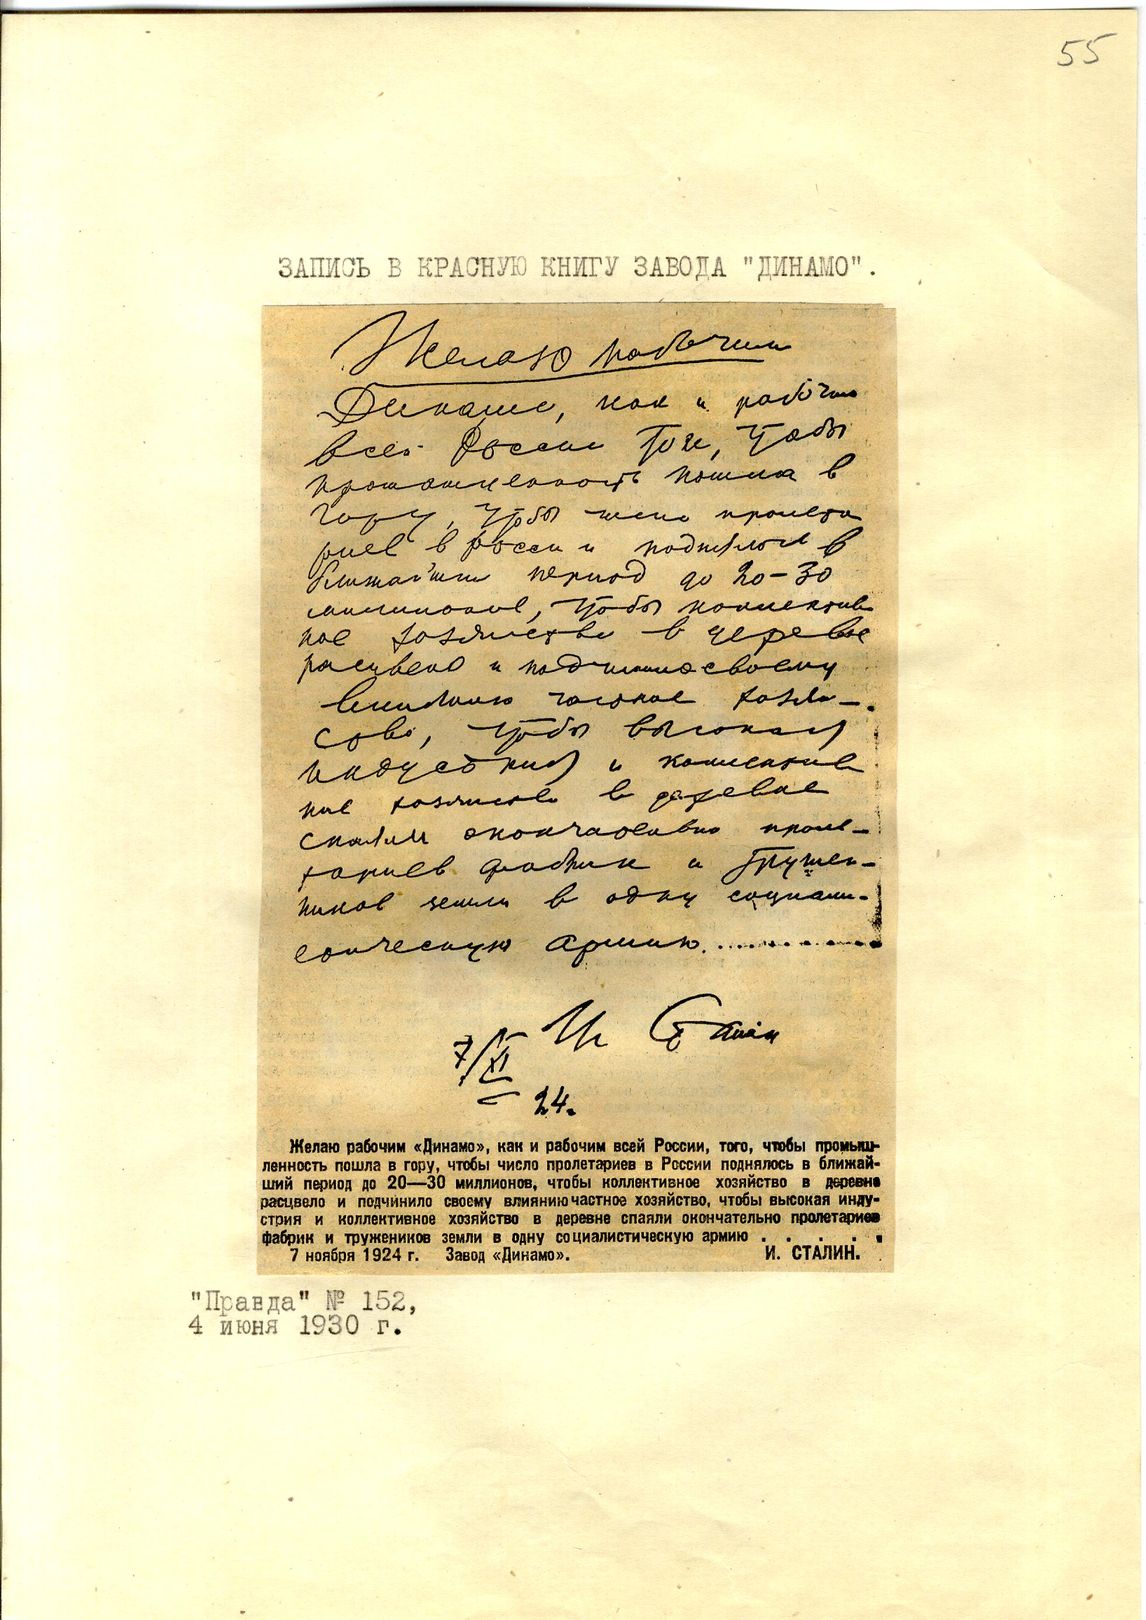 55
ЗАПИСЬ В КРАСНУЮ КНИГУ ЗАВОДА "ДИНАМО".
Желаю рабочим
Динамо, как и рабочим
всей России того, чтобы
промышленность пошла в
гору, чтобы число пролета
риев в России поднялось в
ближайший период до 20–30
миллионов, чтобы коллектив
ное хозяйство в деревне
расцвело и подчинило своему
влиянию частное хозяй–
ство, чтобы высокая
индустрия и коллектив
ное хозяйство в деревне
спаяли окончательно проле–
тариев фабрик и труже–
ников земли в одну социали–
стическую армию...........
И. Сталин
7/XI
24.
Желаю рабочим «Динамо», как и рабочим всей России, того, чтобы промыш-
ленность пошла в гору, чтобы число пролетариев в России поднялось в ближай-
ший период до 20—30 миллионов, чтобы коллективное хозяйство в деревне
расцвело и подчинило своему влиянию частное хозяйство, чтобы высокая инду-
стрия и коллективное хозяйство в деревне спаяли окончательно пролетариев
фабрик и тружеников земли в одну социалистическую армию . . . . . .
7 ноября 1924 г. Завод «Динамо». И. СТАЛИН.
"Правда" № 152,
4 июня 1930 г.